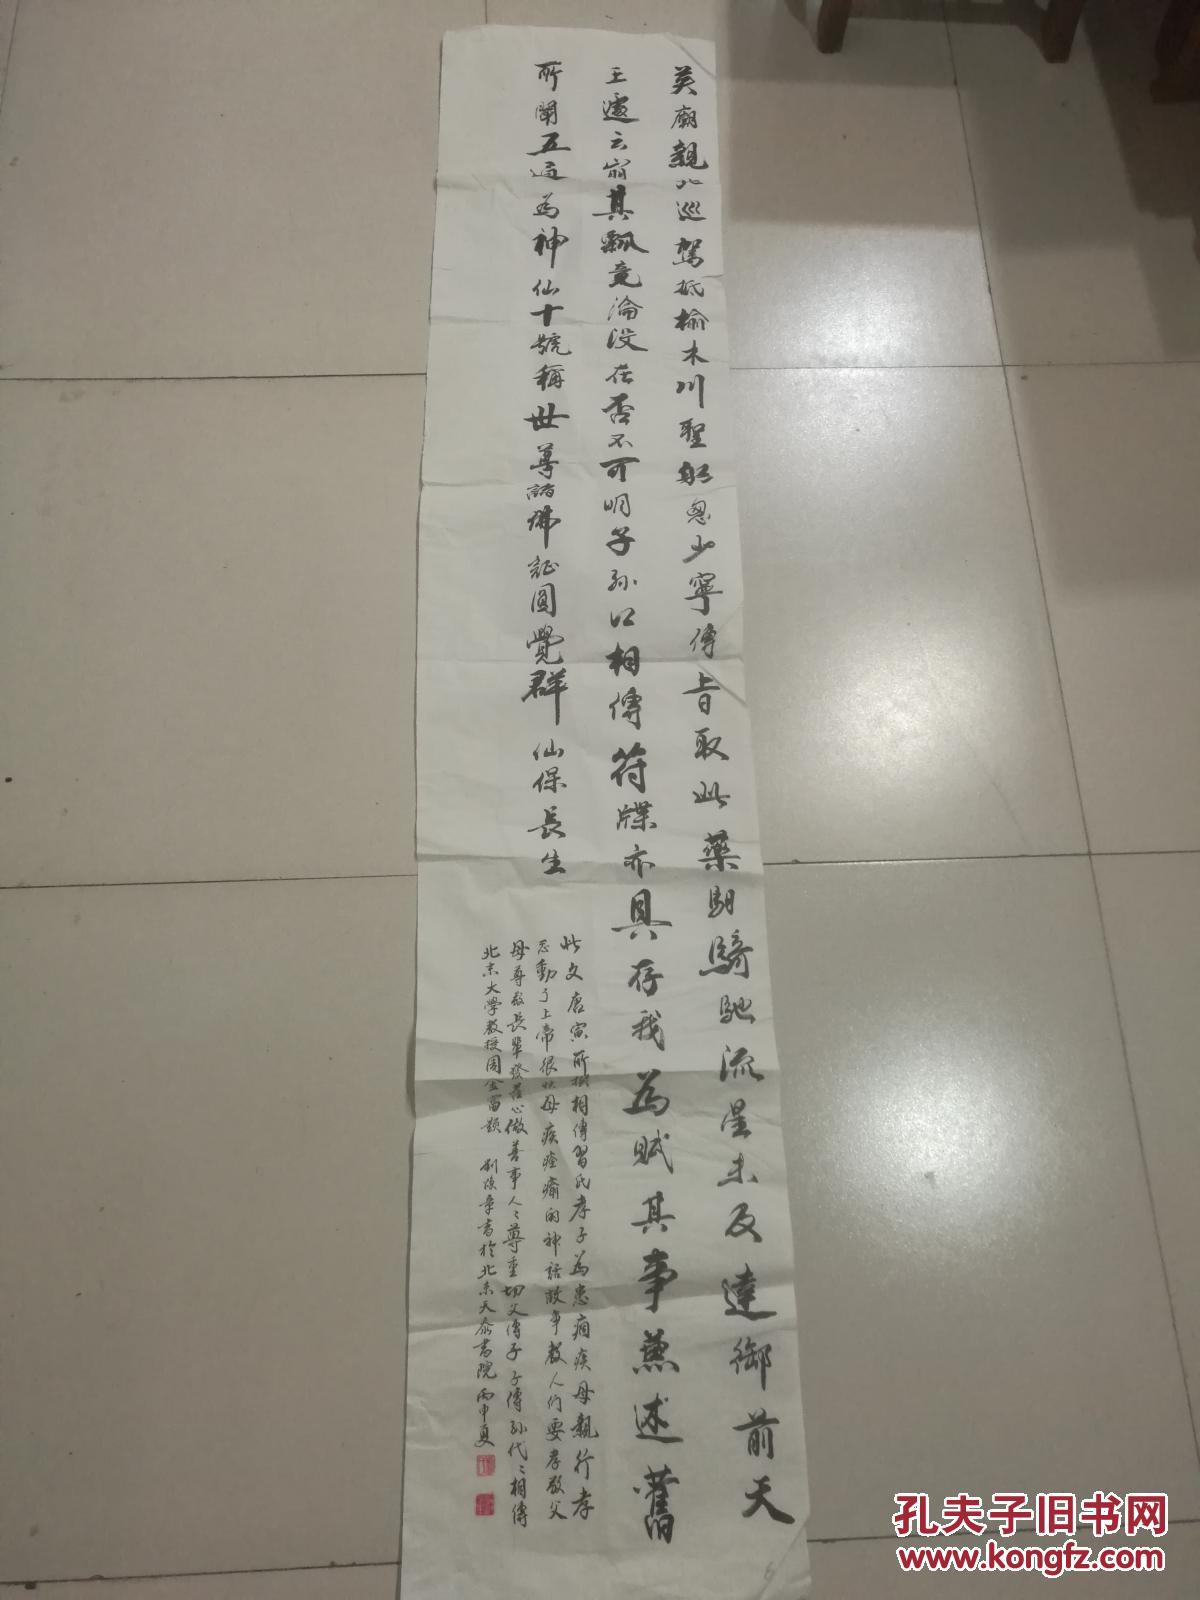 英廟親北巡駕抵榆木川聖躬忽少寧傳旨取此藥馹騎馳流星未及達御前天
王遽云崩其瓢竟淪没在否不可明子孫口相傳符牒亦具存我為賦其事兼述舊
所聞五通為神仙十號稱世尊諸佛証圓覺群仙保長生
此文唐寅所撰相傳習氏孝子為患痼疾母親行孝
感動了上帝很快母疾痊癒的神話故事教人们要孝敬父
母尊敬長輩發善心做善事人々尊重切父傳子子傳孫代々相傳
北京大學教授周金富題 劉陰章書於北京天泰書院丙申夏
6
孔夫子旧书网
www.kongfz.com